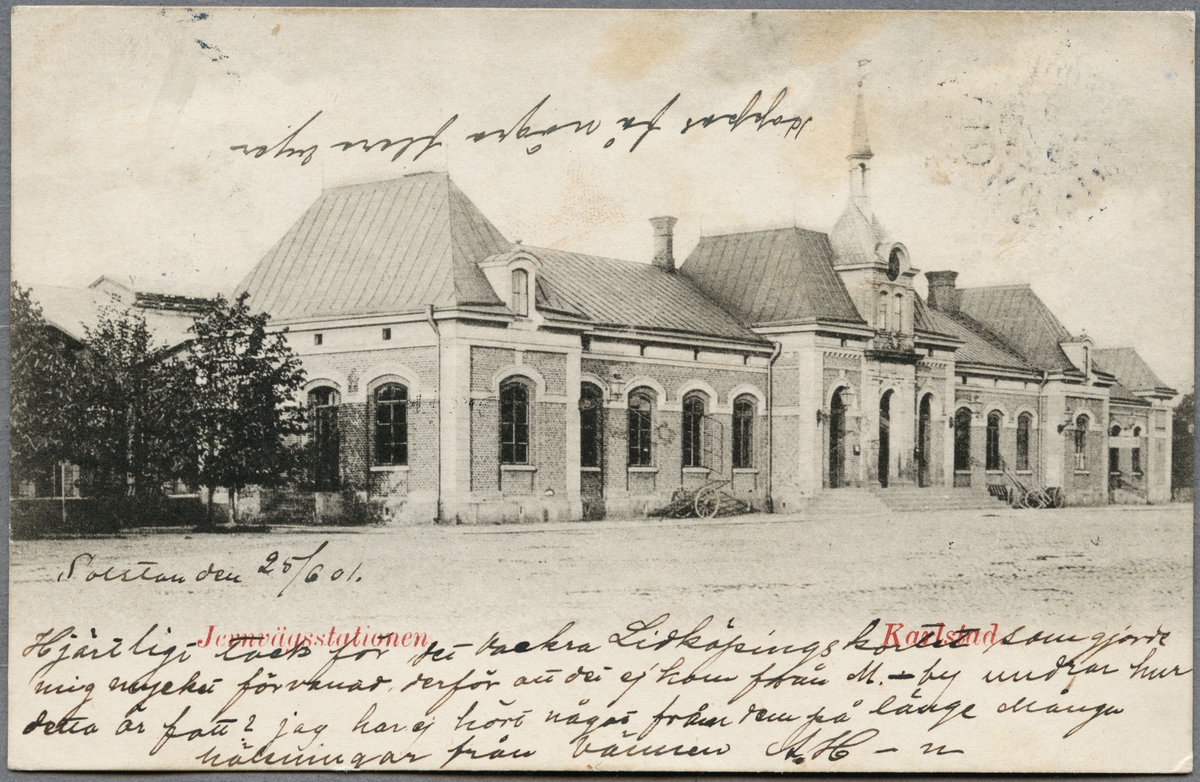 hoppas få några flera vyer
Solstan den 25/6 01.
Jernvägsstationen Karlstad.
Hjärtligt tack för det vackra Lidköpingskortet som gjorde
mig mycket förvånad, derför att det ej kom från M.-by undrar hur
detta är fatt? jag har ej hört något från dem på länge Många
hälsningar från vännen A.H-n